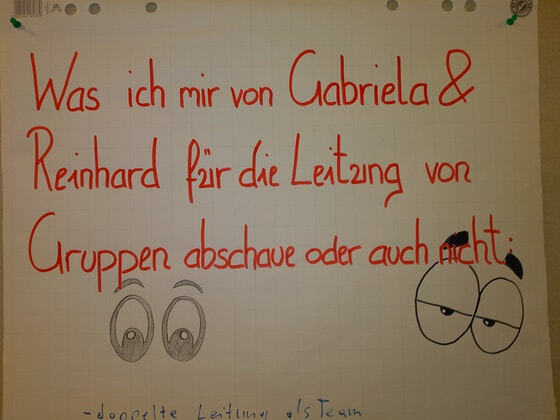 Was ich mir von Gabriela &
Reinhard für die Leitung von
Gruppen abschaue oder auch nicht:
-doppelte Leitung als Team